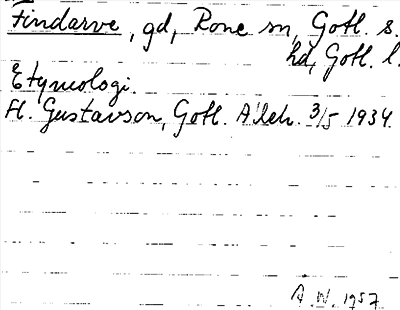 Findarve, gd, Rone sn, Gotl. s.
hd, Gotl. l.
Etymologi.
H. Gustavson, Gotl. Alleh. 3/5 1934.
A.W. 1957